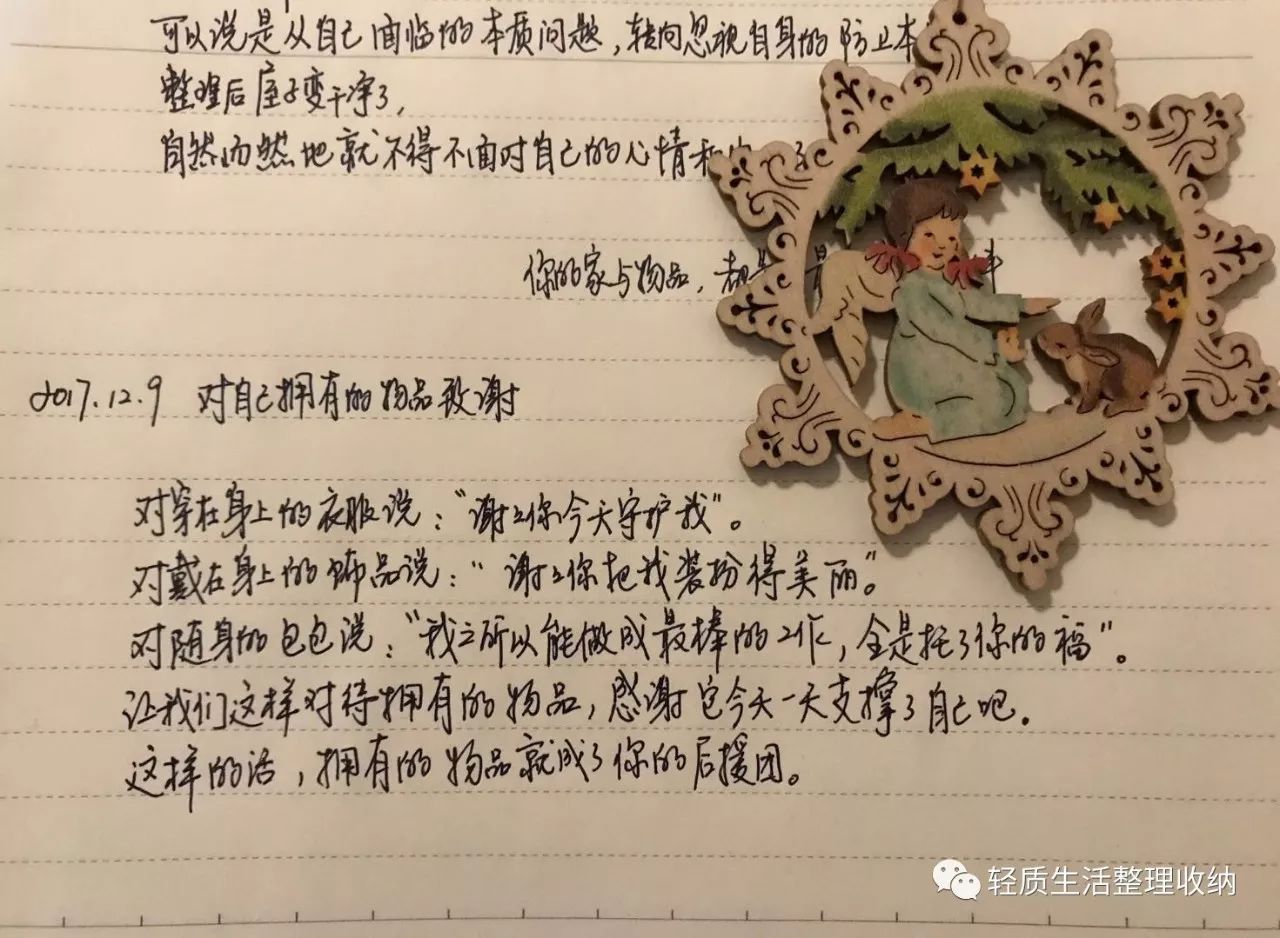 可以说是从自己面临的本质问题，转向忽视自身的防卫本
整理后屋子变干净了，
自然而然地就不得不面对自己的心情和
你的家与物品，都
2017.12.9 对自己拥有的物品致谢
对穿在身上的衣服说：“谢谢你今天守护我”。
对戴在身上的饰品说：“谢谢你把我装扮得美丽”。
对随身的包包说：“我之所以能做成最棒的工作，全是托了你的福”。
让我们这样对待拥有的物品，感谢它今天一天支撑了自己吧。
这样的话，拥有的物品就成了你的后援团。
轻质生活整理收纳